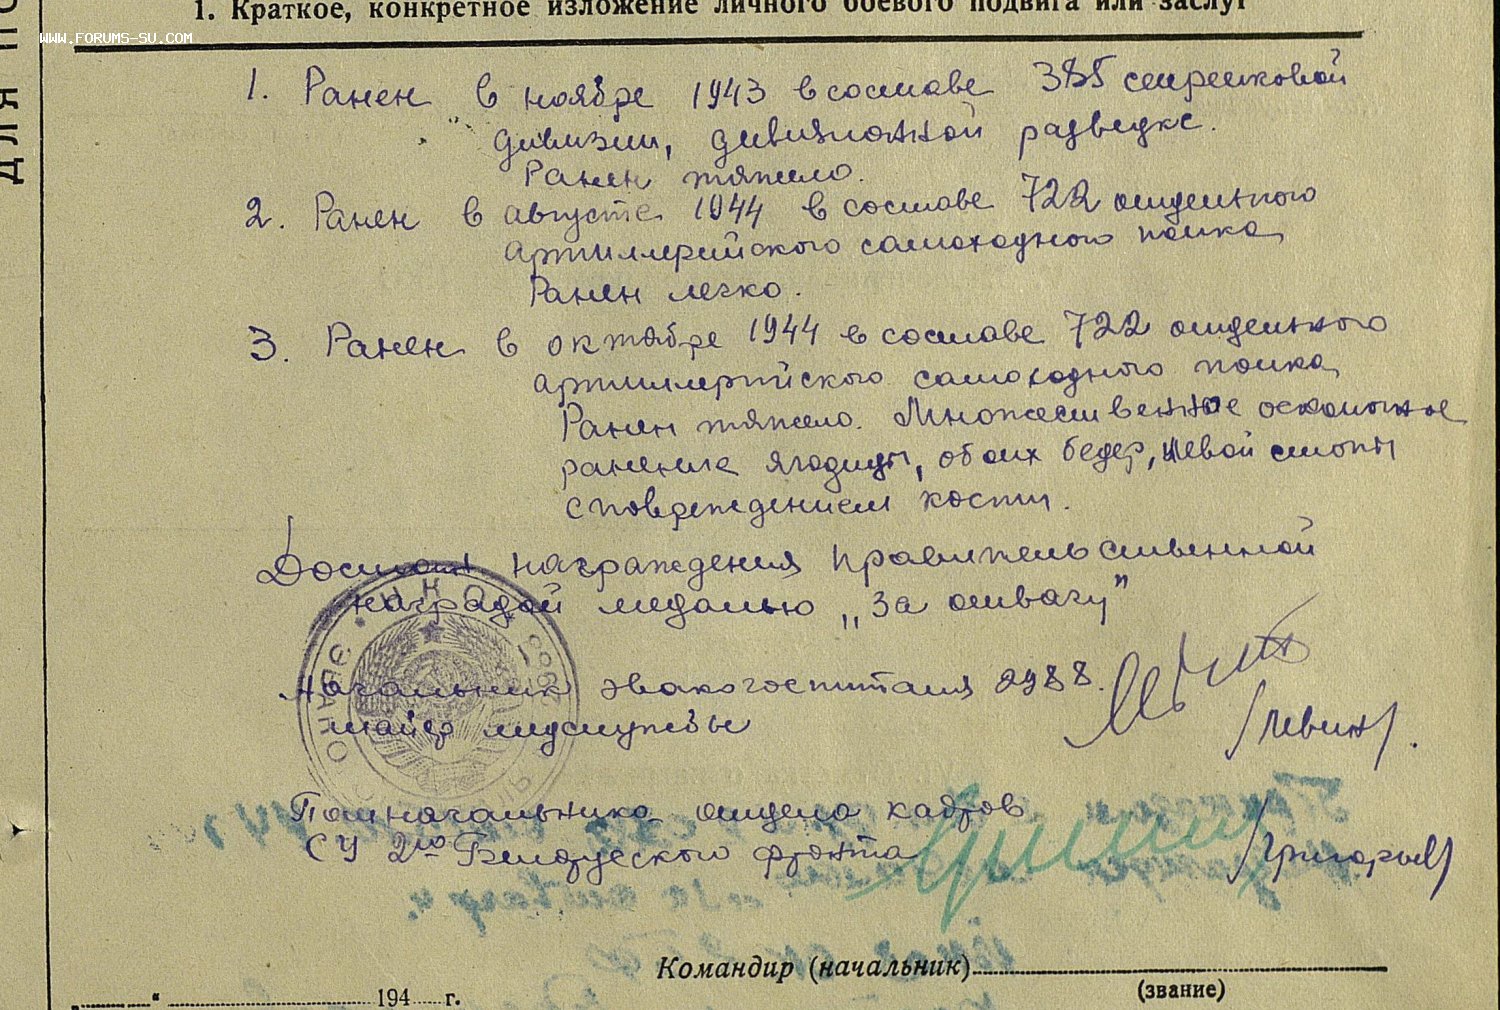 I. Краткое, конкретное изложение личного боевого подвига или заслуг
WWW.FORUMS-SU.COM
ДЛЯ
1. Ранен в ноябре 1943 в составе 385 стрелковой
дивизии, дивизионной разведке.
Ранен тяжело.
2. Ранен в августе 1944 в составе 722 отдельного
артиллерийского самоходного полка
Ранен легко.
3. Ранен в октябре 1944 в составе 722 отдельного
артиллерийского самоходного полка
Ранен тяжело. Множественное осколочное
ранение ягодицы, обоих бедер, левой стопы
с повреждением кости.
Достоин награждения правительственной
наградой медалью „За отвагу"
Начальник эвакогоспиталя 2988.
майор медслужбы
/Левин/.
Помначальника отдела кадров
СУ 2го Белорусского фронта
/Григорьев/
НКО СССР
ЭВАКО
Командир (начальник)
(звание)
" 194 г.